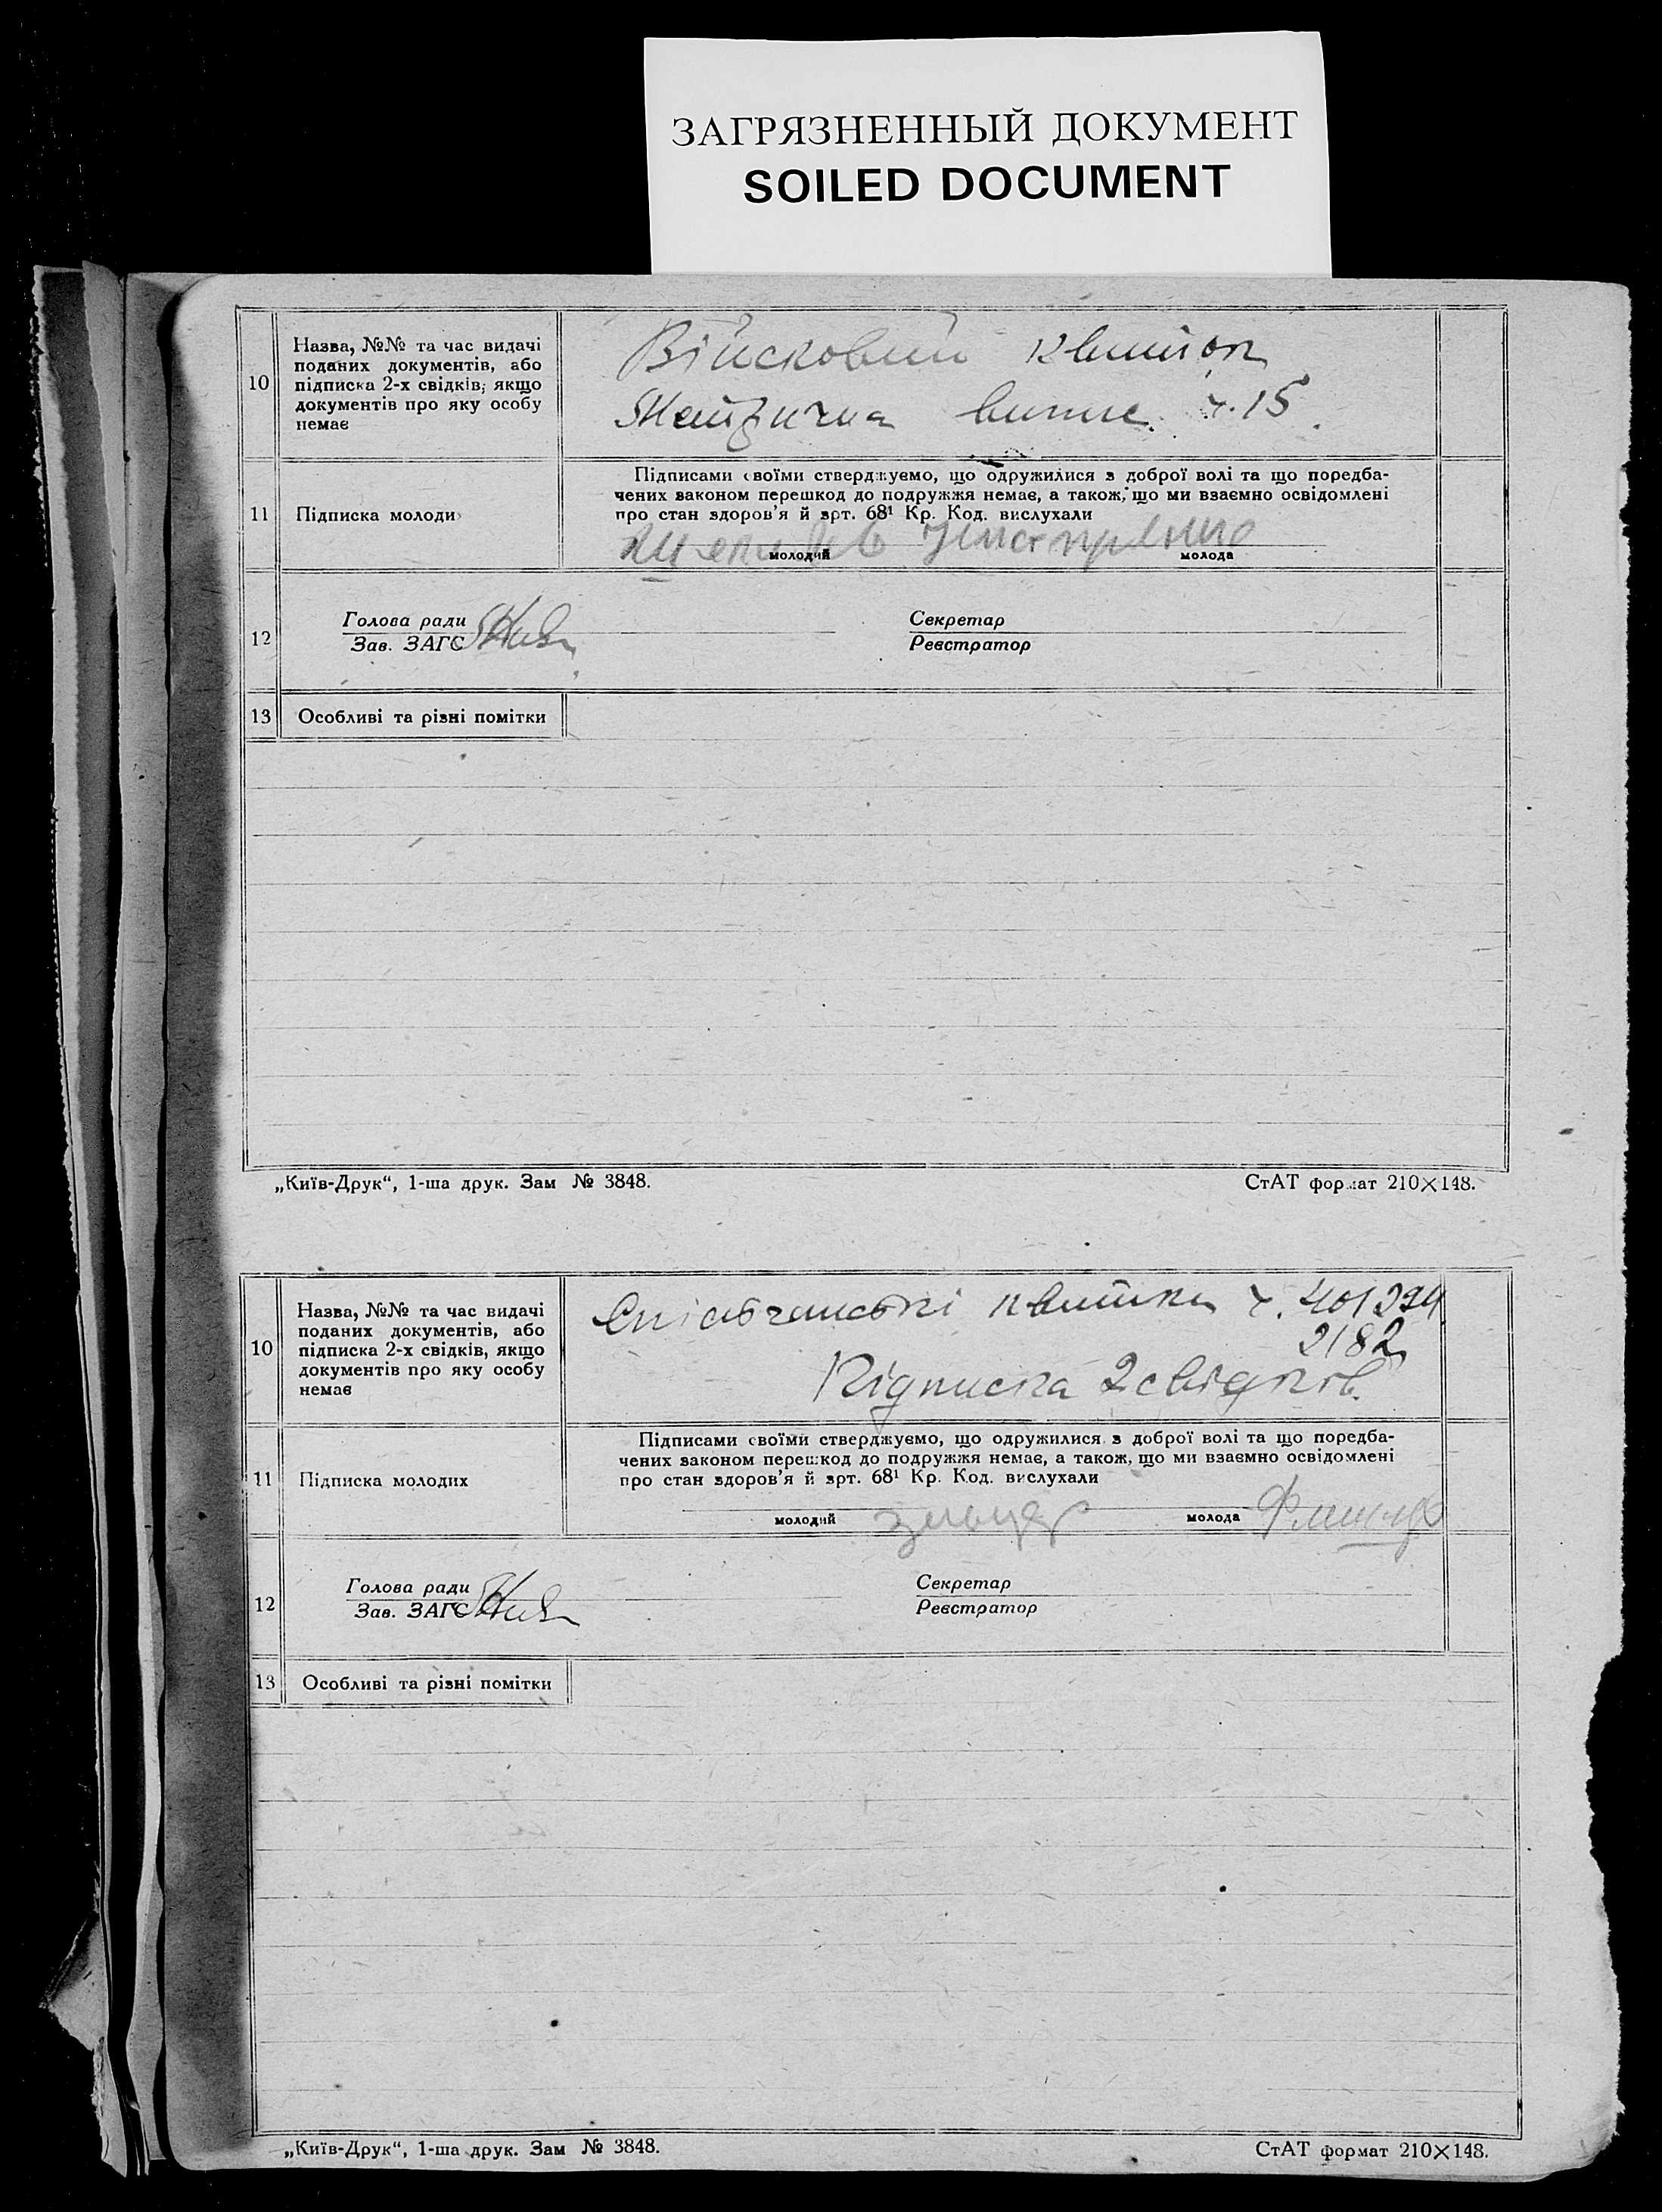 ЗАГРЯЗНЕННЫЙ ДОКУМЕНТ
SOILED DOCUMENT
10
Назва, №№ та час видачі
поданих документів, або
підписка 2-х свідків, якщо
документів про яку особу
немає
Військовий квиток
Метрична випис. ч. 15
11
Підписка молоди
Підписами своїми стверджуємо, що одружилися з доброї волі та що поредба-
чених законом перешкод до подружжя немає, а також, що ми взаємно освідомлені
про стан здоров'я й арт. 68¹ Кр. Код. вислухали
молодий
молода
12
Голова ради
Зав. ЗАГС
Секретар
Реєстратор
13
Особливі та різні помітки
„Київ-Друк“, 1-ша друк. Зам № 3848.
СтАТ формат 210×148.
10
Назва, №№ та час видачі
поданих документів, або
підписка 2-х свідків, якщо
документів про яку особу
немає
квитки ч. 401394
2182
Підписка 2 свідків.
11
Підписка молодих
Підписами своїми стверджуємо, що одружилися з доброї волі та що поредба-
чених законом перешкод до подружжя немає, а також, що ми взаємно освідомлені
про стан здоров'я й арт. 68¹ Кр. Код. вислухали
молодий
молода
12
Голова ради
Зав. ЗАГС
Секретар
Реєстратор
13
Особливі та різні помітки
„Київ-Друк“, 1-ша друк. Зам № 3848.
СтАТ формат 210×148.